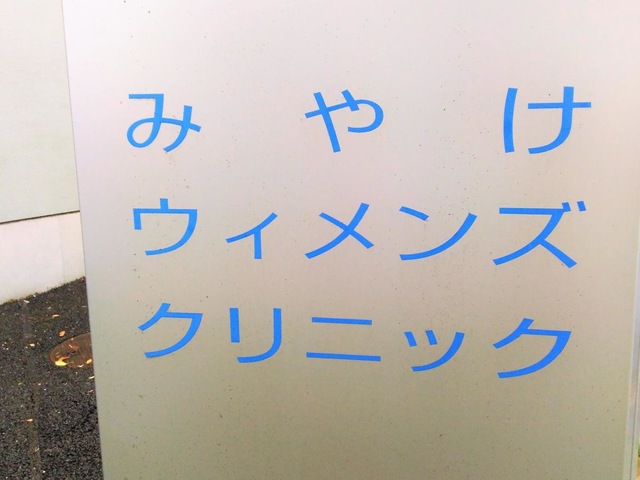 みやけ
ウィメンズ
クリニック